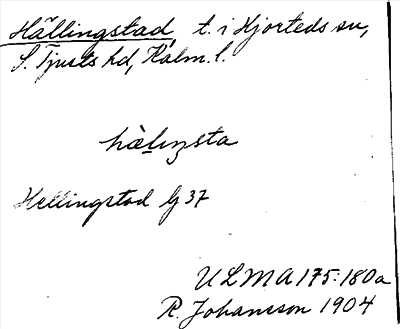 Hällingstad, t. i Hjorteds sn,
S. Tjusts hd, Kalm. l.
hæ̀lıŋsta
Hellingstad Gj 37
ULMA 175:180a
R. Johansson 1904